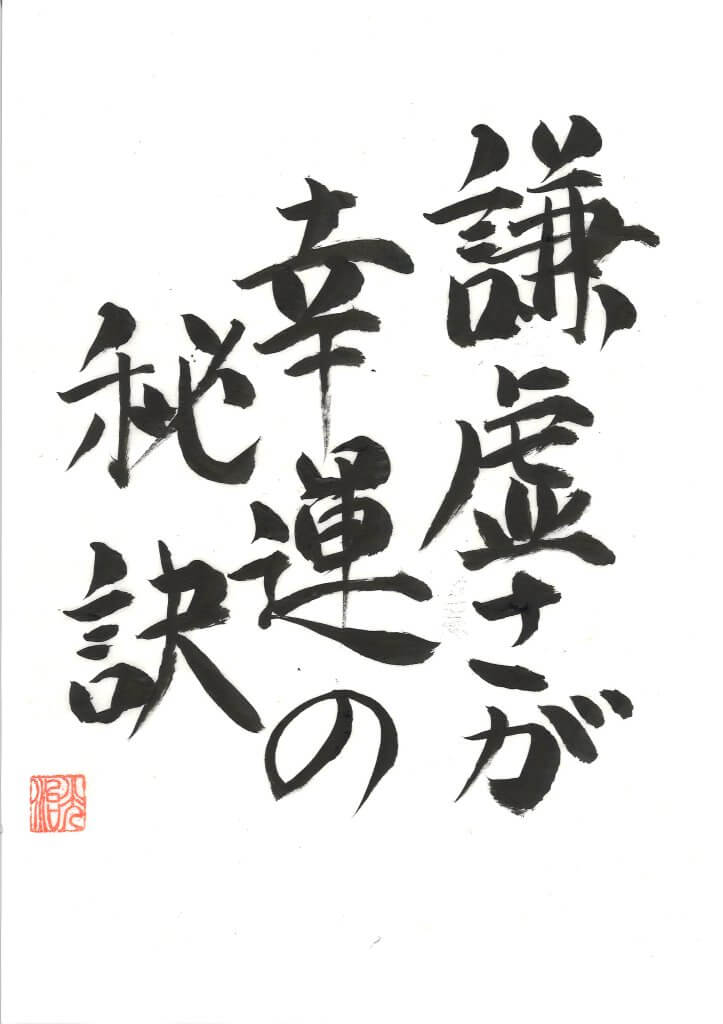 謙虚さが
幸運の
秘訣